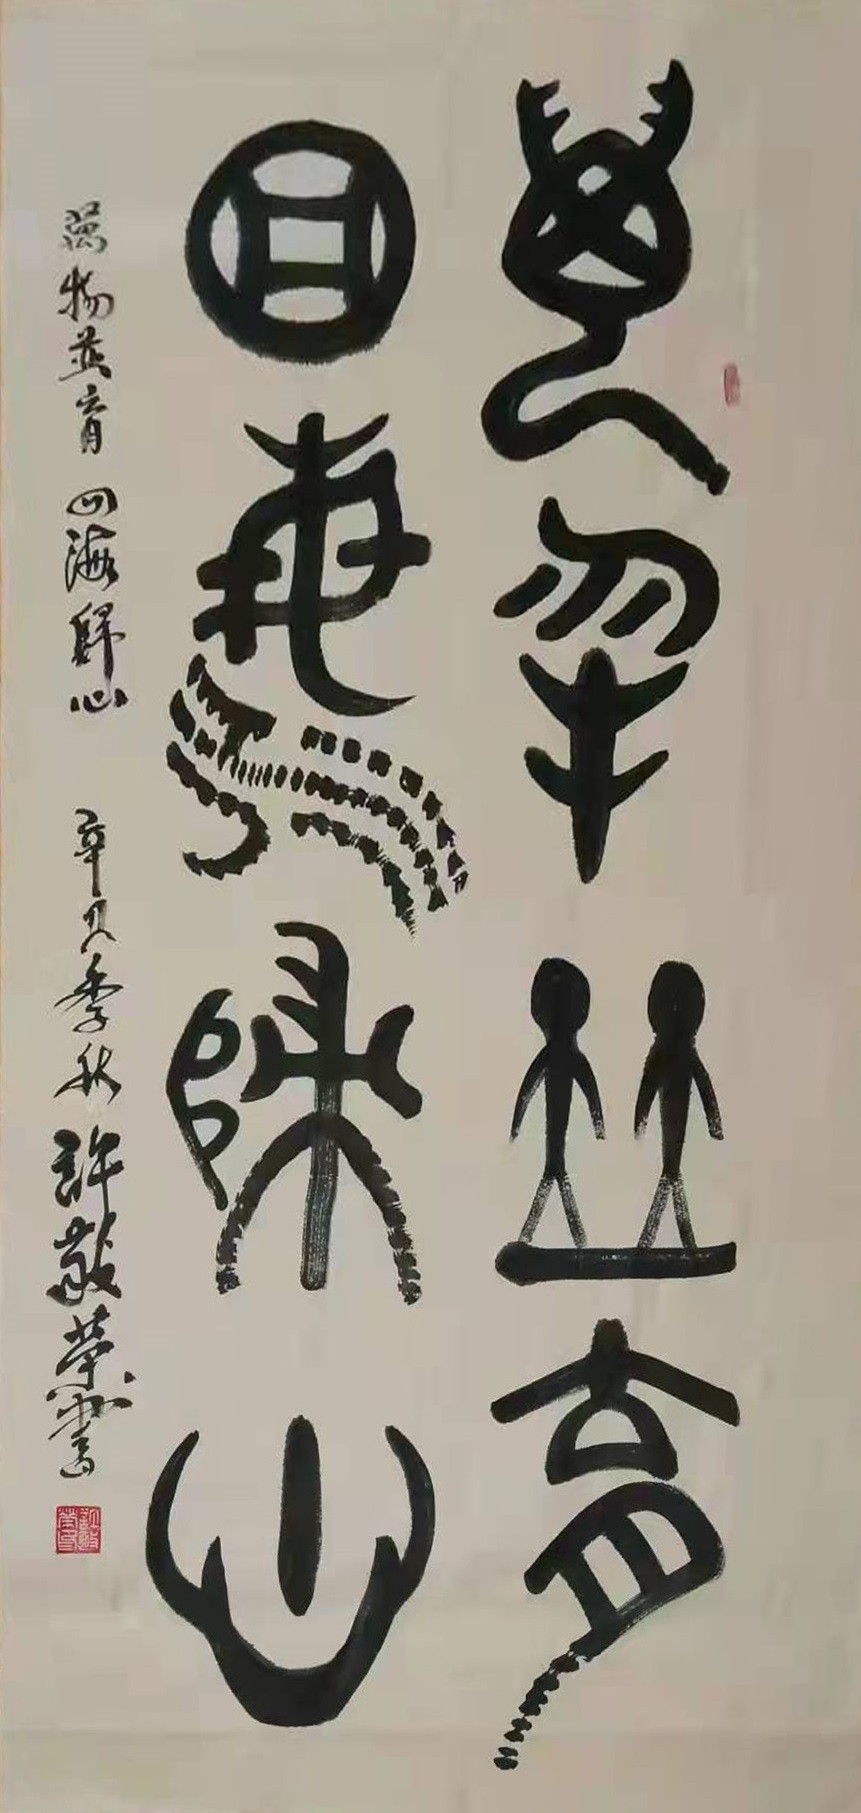 萬物並育
四海歸心
萬物並育 四海歸心 辛丑季秋 許敬榮書